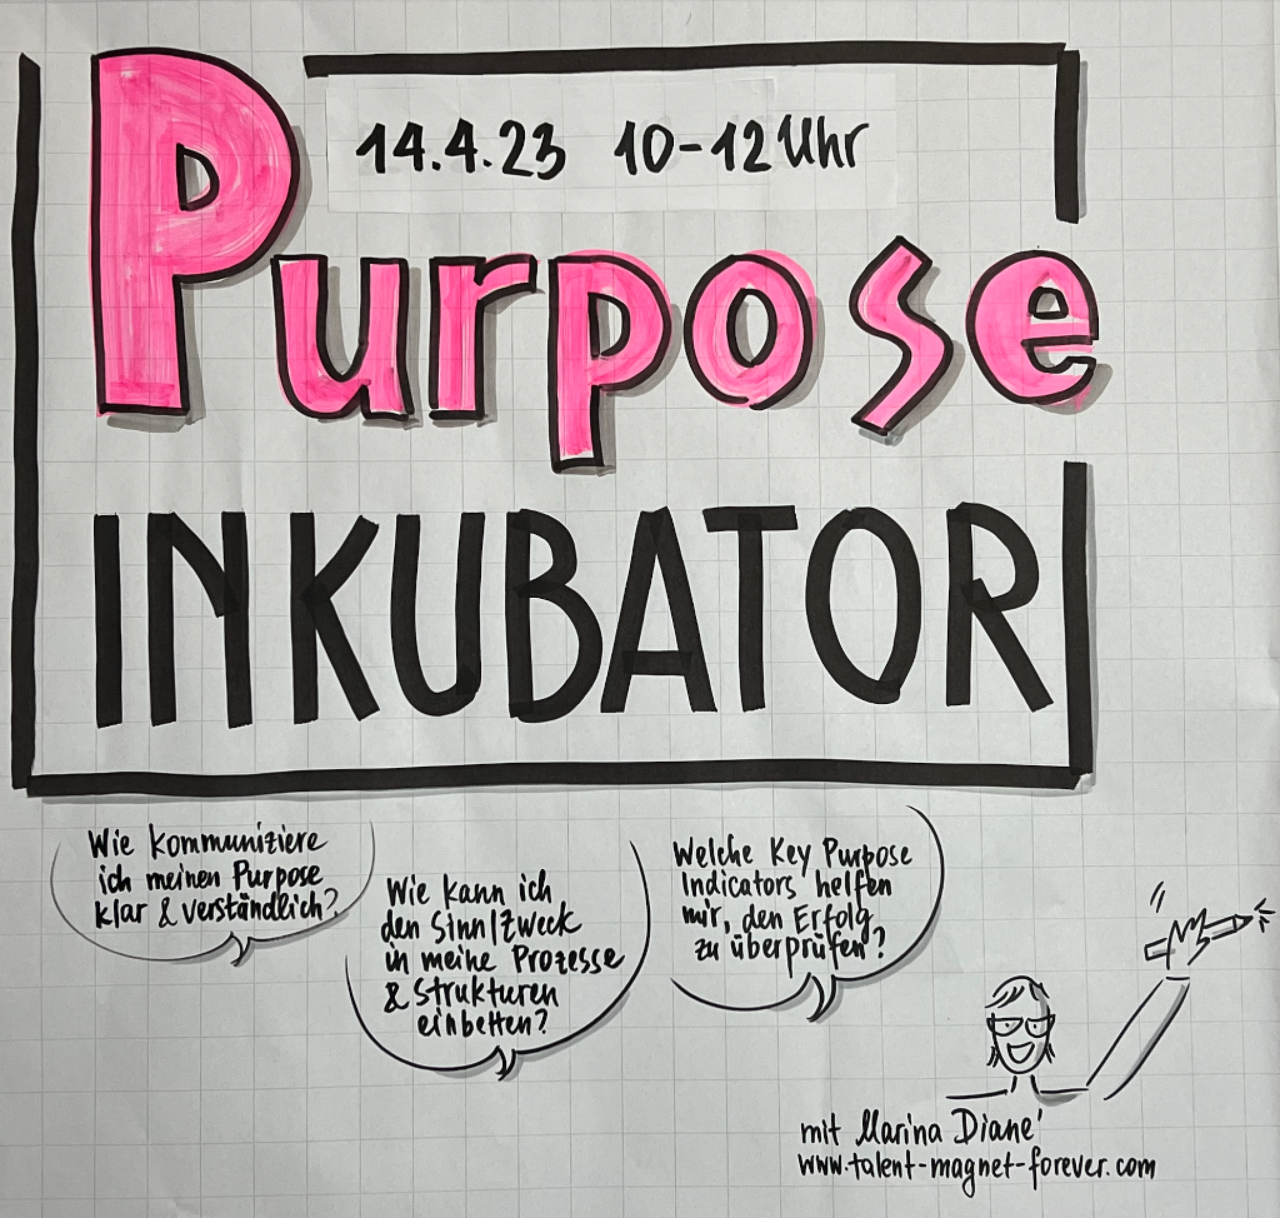 14.4.23 10-12 Uhr
Purpose
INKUBATOR
Wie kommuniziere
ich meinen Purpose
klar & verständlich?
Wie kann ich
den Sinn/Zweck
in meine Prozesse
& Strukturen
einbetten?
Welche Key Purpose
Indicators helfen
mir, den Erfolg
zu überprüfen?
mit Marina Diané
www.talent-magnet-forever.com